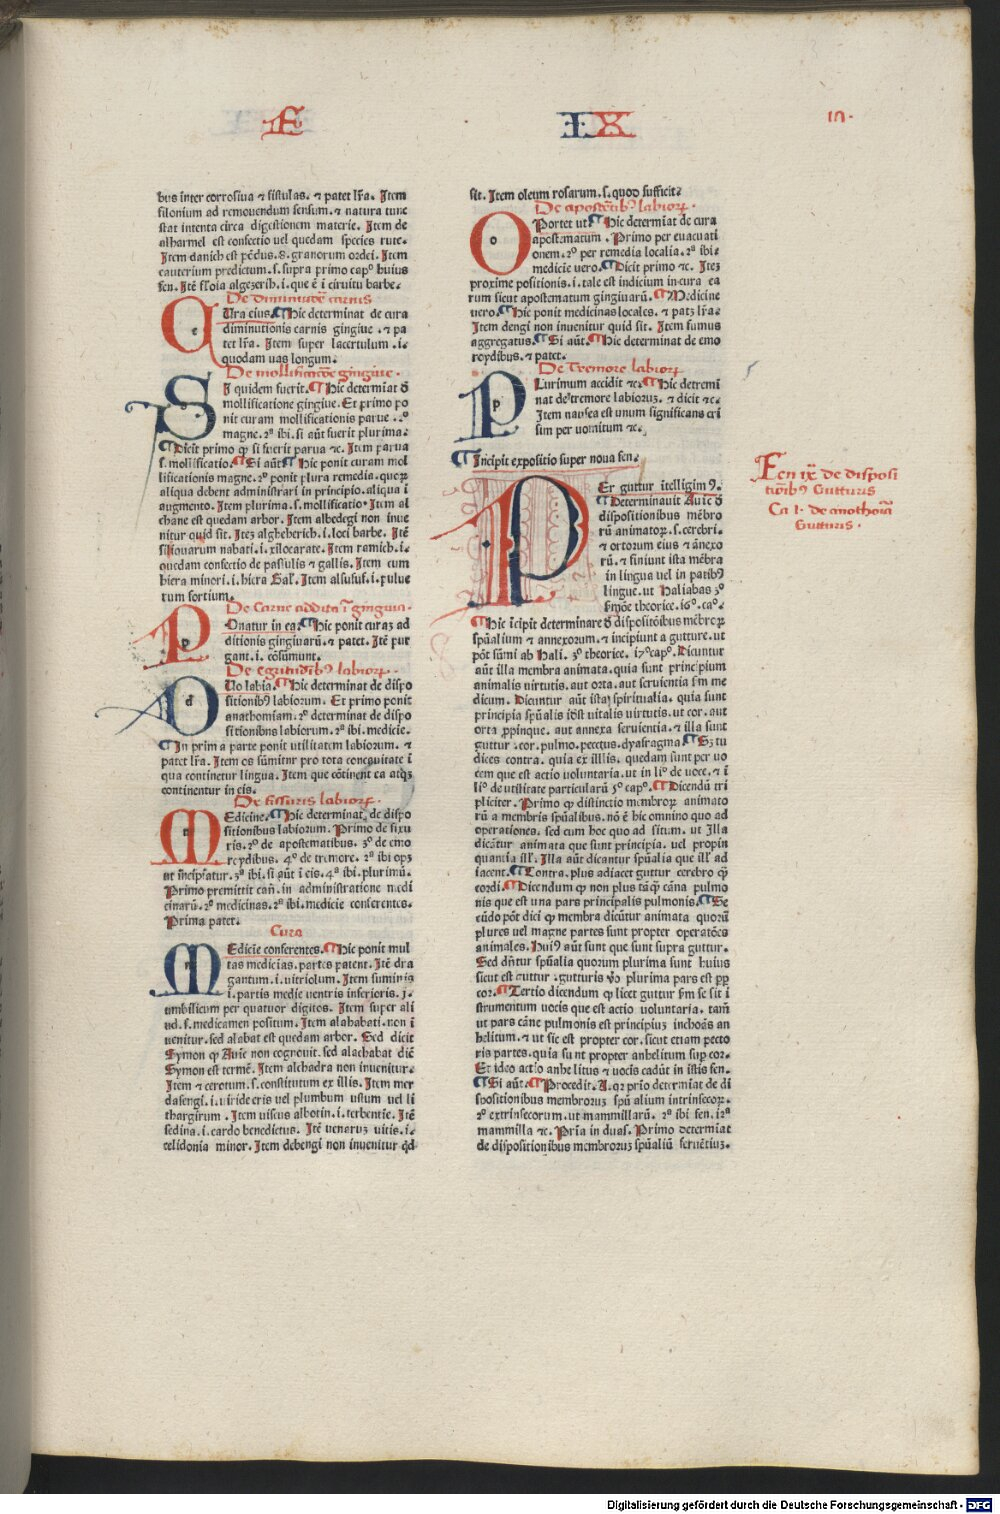 F
IX
bus inter corrosiua ⁊ fistulas. ⁊ patet lr̄a. Item
filonium ad remouendum sensum. ⁊ natura tunc
stat intenta circa digestionem materie. Item de
alharmel est confectio uel quedam species rute.
Item danich est pōdus .8. granorum ordei. Item
cauterium predictum .s. supra primo cap⁰ huius
fen. Itē flōia algezerih .i. que ē ī circuitu barbe.
De diminutōe carnis
Ura eius. ¶ Hic determinat de cura
diminutionis carnis gingiue . ⁊ pa
tet lr̄a. Item super lacertulum .i.
quodam uas longum.
De mollificatōe gingiue.
I quidem fuerit. ¶ Hic determīat d̄
mollificatione gingiue. Et primo po
nit curam mollificationis parue. 2⁰
magne. 2ª ibi. si aūt fuerit plurima.
¶ Dicit primo ꝙ si fuerit parua ⁊c. Item parua
s. mollificatio. ¶ Si aūt ¶ Hic ponit curam mol
lificationis magne. 2⁰ ponit plura remedia. quoꝝ
aliqua debent administrari in principio. aliqua ī
augmento. Item plurima .s. mollificatio. Item al
chane est quedam arbor. Item albedegi non inue
nitur quid sit. Iteꝫ algheherich .i. loci barbe. Itē
siliquarum nabati .i. xilocarate. Item ramich .i.
quedam confectio de passulis ⁊ gallis. Item cum
hiera minori .i. hiera Gal'. Item alsufuf .i. pulue
rum fortium.
De Carne addita ī gingiua.
Onatur in ea. ¶ Hic ponit curaꝫ ad
ditionis gingiuarū. ⁊ patet. Itē pur
gant .i. cōsumunt.
De egritudībꝰ labioꝝ.
Uo labia. ¶ Hic determinat de dispo
sitionibꝰ labiorum. Et primo ponit
anathomiam. 2⁰ determinat de dispo
sitionibus labiorum. 2ª ibi. medicie.
¶ In prima parte ponit utilitatem labiorum. ⁊
patet lr̄a. Item os sūmitur pro tota concauitate ī
qua continetur lingua. Item que cōtinent ea atqꝫ
continentur in eis.
De fissuris labioꝝ.
Edicine. ¶ Hic determinat de dispo
sitionibus labiorum. Primo de fixu
ris. 2⁰ de apostematibus. 3⁰ de emo
roydibus. 4⁰ de tremore. 2ª ibi opꝫ
ut īncipīatur. 3ª ibi. si aūt ī eis. 4ª ibi. plurimū.
Primo premittit cañ. in administratione medi
cinarū. 2⁰ medicinas. 2ª ibi. medicie conferentes.
Prima patet.
Cura
Edicie conferentes. ¶ Hic ponit mul
tas medicias. partes patent. Itē dra
gantum .i. uitriolum. Item suminia
.i. partis medie uentris inferioris .i.
umbilicum per quatuor digitos. Item super ali
ud .s. medicamen positum. Item alahabati. non ī
uenitur. sed alabat est quedam arbor. Sed dicit
Symon ꝙ Auic̄ non cognouit. sed alachabat dic̄
Symon est termē. Item alchadra non inuenitur.
Item ⁊ cerotum .s. constitutum ex illis. Item mer
dasengi .i. uiride eris uel plumbum ustum uel li
thargirum . Item uiscus albotin .i. terbentie. Itē
sedina .i. cardo benedictus. Itē uenarum uitis .i.
celidonia minor. Item debengi non inuenitur qd
sit. Item oleum rosarum .s. quod sufficit.
De apostētibꝰ labioꝝ.
Portet ut. ¶ Hic determīat de cura
apostematum . Primo per euacuati
onem. 2⁰ per remedia localia. 2ª ibi.
medicie uero. ¶ Dicit primo ⁊c. Iteꝫ
proxime positionis .i. tale est indicium in cura ea
rum sicut apostematum gingiuarū. ¶ Medicine
uero. ¶ Hic ponit medicinas locales. ⁊ patꝫ lr̄a.
Item dengi non inuenitur quid sit. Item sumus
aggregatus. ¶ Si aūt. ¶ Hic determinat de emo
roydibus. ⁊ patet.
De Tremore labioꝝ
Lurimum accidit ⁊c. ¶ Hic determi
nat de tremore labioruꝫ. ⁊ dicit ⁊c.
Item nausea est unum significans cri
sim per uomitum ⁊c.
¶ Incipit expositio super nona fen.
Fen ix de disposi
tionibꝰ Gutturis
Ca I. de anothoīa
Gutturis.
Er guttur ītelligimꝰ.
¶ Determinauit Auic̄ d̄
dispositionibus mēbro
rū animatoꝝ .s. cerebri.
⁊ ortorum eius ⁊ ānexo
rū. ⁊ finiunt ista mēbra
in lingua uel in partibꝰ
lingue. ut Haliabas 3⁰
sermōe theorice. 16⁰. ca⁰.
¶ Hic īcipit determinare d̄ dispositōibus mēbroꝝ
spūalium ⁊ annexorum. ⁊ incipiunt a gutture. ut
pōt sūmi ab Hali. 3⁰ theorice. 17⁰ cap⁰. Dicuntur
aūt illa membra animata. quia sunt principium
animalis uirtutis. aut orta. aut seruientia sm̄ me
dicum. Dicuntur aūt istaꝫ spiritualia. quia sunt
principia spūalis idest uitalis uirtutis. ut cor. aut
orta ꝓpinque. aut annexa seruientia. ⁊ illa sunt
guttur. cor. pulmo. pectus. dyafragma. ¶ Sꝫ tu
dices contra. quia ex illis. quedam sunt per uo
cem que est actio uoluntaria. ut in li⁰ de uoce. ⁊ ī
li⁰ de utilitate particularū 5⁰ cap⁰. ¶ Dicendū tri
pliciter. Primo ꝙ distinctio membroꝝ animato
rū a membris spūalibus. nō ē hic omnino quo ad
operationes. sed cum hoc quo ad situm. ut Illa
dicātur animata que sunt principia. uel propin
quantia ill'. Illa aūt dicantur spūalia que ill' ad
iacent. ¶ Contra. plus adiacet guttur cerebro ꝙ
cordi. ¶ Dicendum ꝙ non plus tāqꝫ cāna pulmo
nis que est una pars principalis pulmonis. ¶ Se
cūdo pōt dici ꝙ membra dicūtur animata quorū
plures uel magne partes sunt propter operatōes
animales. Huiꝰ aūt sunt que sunt supra guttur.
Sed dn̄tur spūalia quorum plurima sunt huius
sicut est guttur . gutturis ṽo plurima pars est ꝓp
cor. ¶ Tertio dicendum ꝙ licet guttur sm̄ se sit ī
strumentum uocis que est actio voluntaria. tam̄
ut pars cāne pulmonis est principiuꝫ inchoās an
helitum. ⁊ ut sic est propter cor. sicut etiam pecto
ris partes. quia sunt propter anhelitum sup̄ cor.
Et ideo actio anhelitus ⁊ uocis cadūt in istis fen.
¶ Si aūt. ¶ Procedit. A. qꝛ prīo determīat de di
spositionibus membroruꝫ spūalium intrinsecoꝝ.
2⁰ extrinsecorum. ut mammillarū. 2ª ibi fen. 12ª
mammilla ⁊c. Prīa in duas. Primo determīat
de dispositionibus membroruꝫ spūaliū seruētiuꝫ.
Digitalisierung gefördert durch die Deutsche Forschungsgemeinschaft - DFG